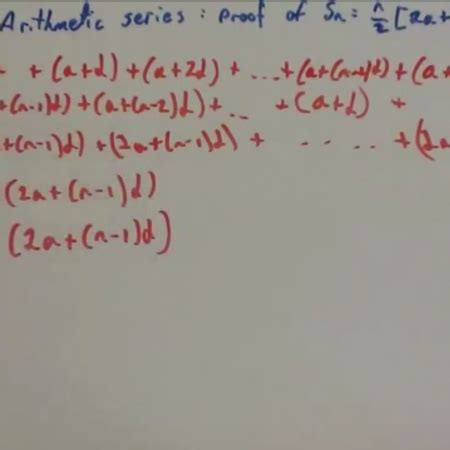 Arithmetic series : proof of Sn = n/2 [2a+
+ (a+d) + (a+2d) + ...+(a+(n-2)d) + (a+
+(n-1)d) + (a+(n-2)d) + .. +(a+d) +
+(n-1)d) + (2a+(n-1)d) + ..... +(2a
(2a+(n-1)d)
(2a+(n-1)d)